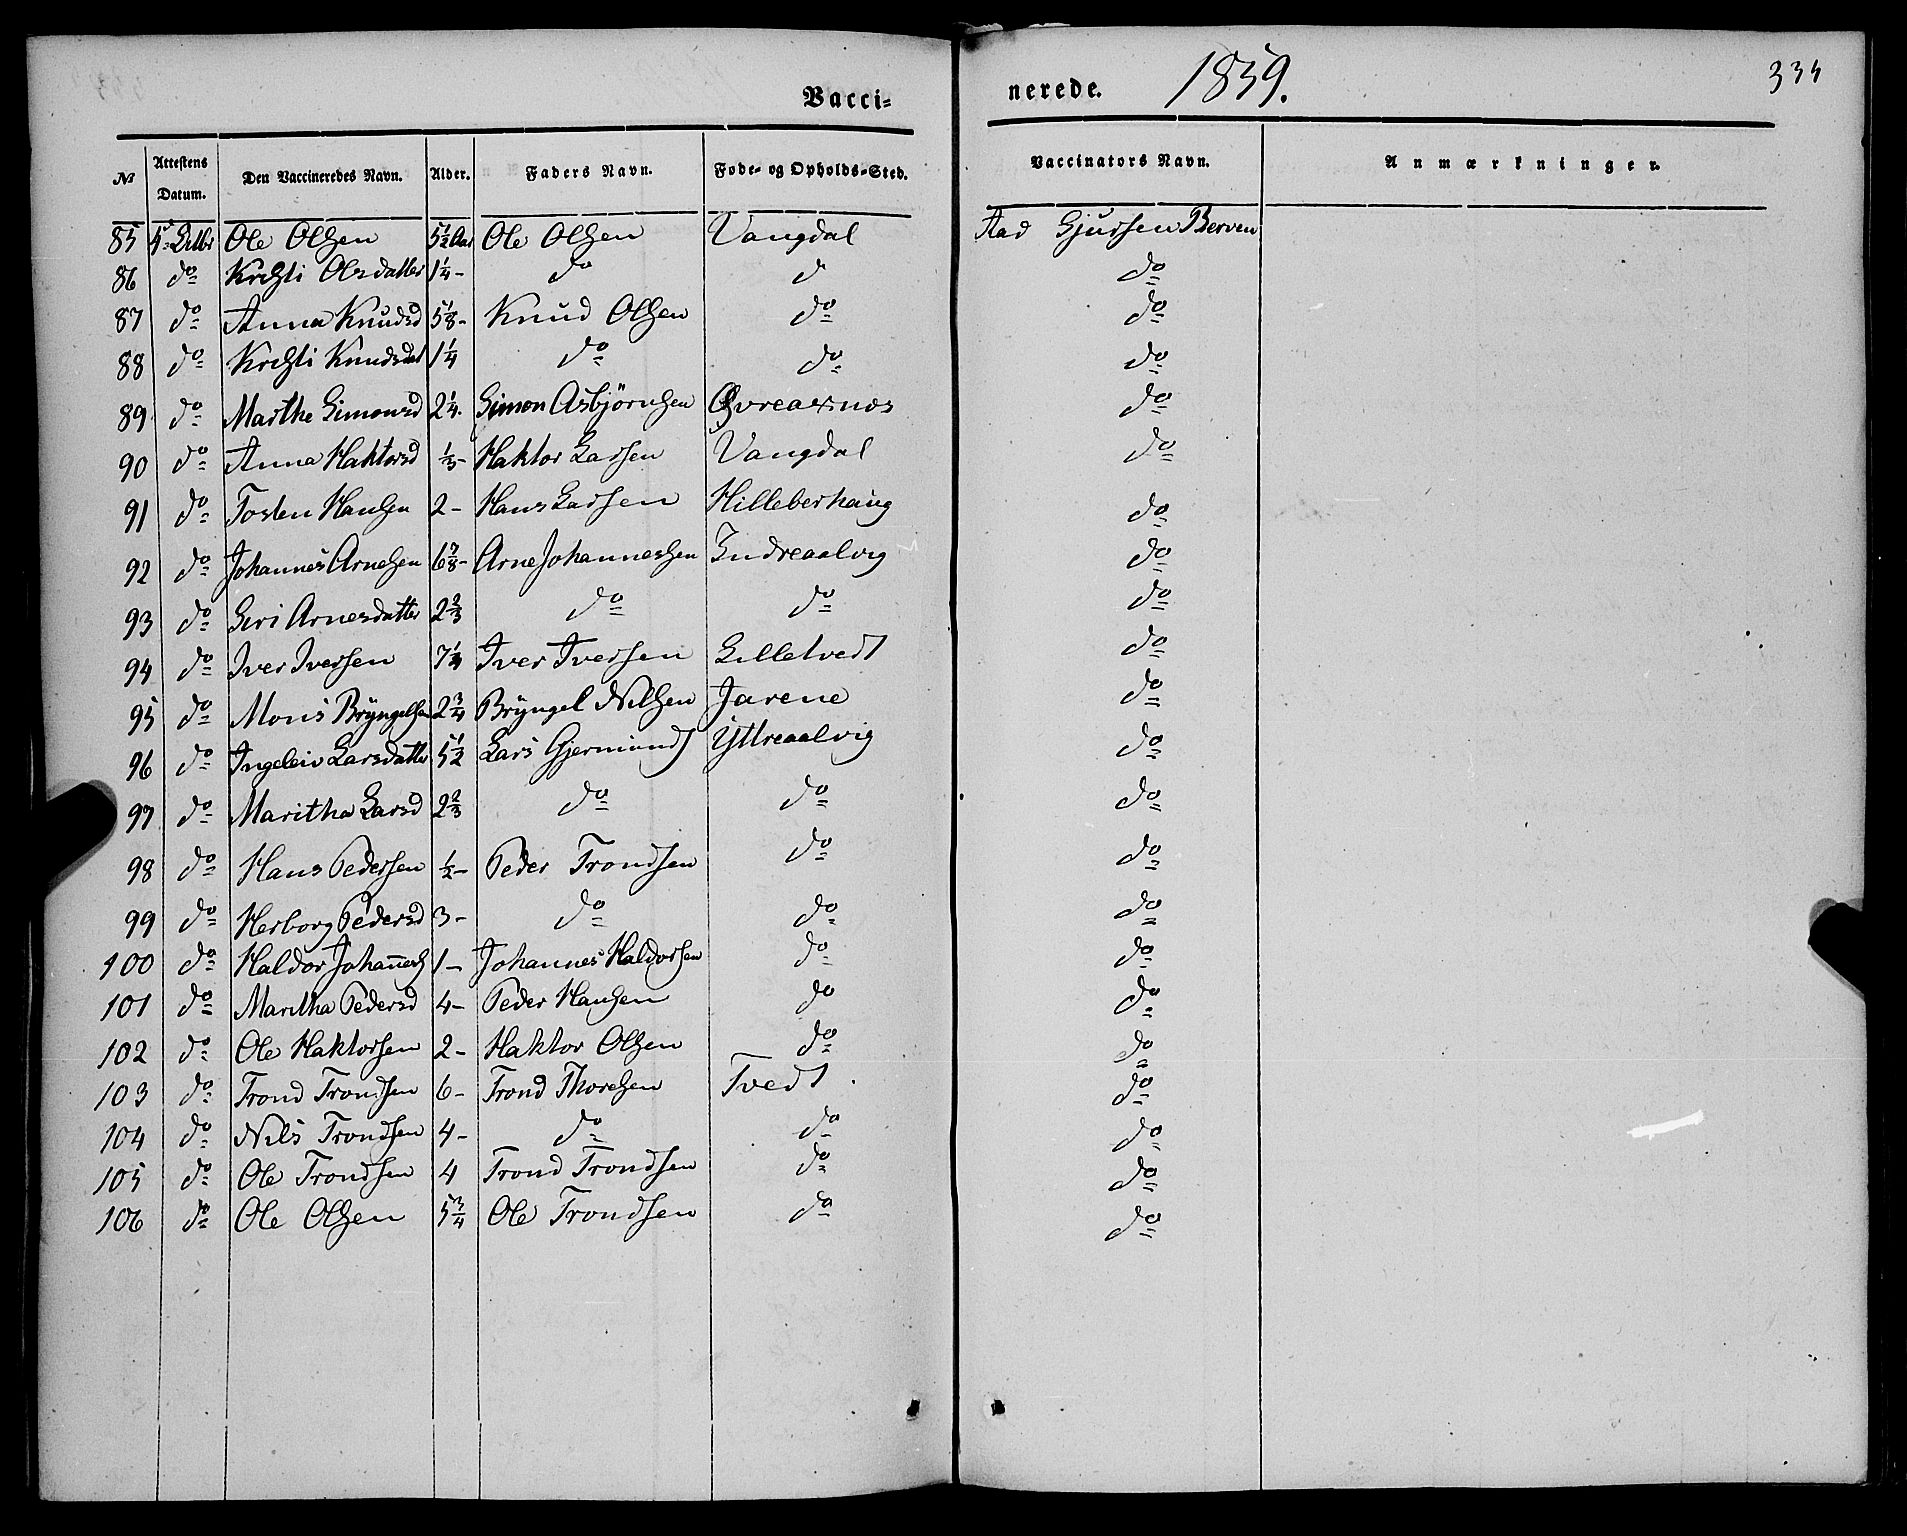 Vacci= nerede. 1859. 334
No Attestens Datum. Den Vaccineredes Navn. Alder. Faders Navn. Føde- og Opholds-Sted. Vaccinators Navn. Anmærkninger.
85 Ole Olsen 5 1/2 Aar Ole Olsen Vangdal Aad Gjursen Berven
86 do Kristi Olsdatter 1 1/4 - do d do
87 do Anna Knudsd 5 1/8 - Knud Olsen do do
88 do Kristi Knudsdat 1 1/4 do do do
89 do Marthe Simonsd 2 1/4. Simon Asbjörnsen Øvreaxnes do
90 do Anna Haktorsd 1/3 - Haktor Larsen Vangdal do
91 do Tosten Hansen 2 - Hans Larsen Hilleberhaug do
92 do Johannes Arnesen 6 7/8 - Arne Johannessen Indreaalvig do
93 do Siri Arnesdatter 2 2/3 do do do
94 do Iver Iversen 7 1/4 Iver Iversen Lilletvedt do
95 do Mons Bryngelsen 2 3/4 Bryngel Nilsen Jarene do
96 do Ingeleiv Larsdatter 5 1/2 Lars Gjermunds Yttreaalvig do
97 do Maritha Larsd 2 2/3 do do do
98 do Hans Pedersen 1/2 - Peder Trondsen do do
99 do Herborg Pedersd 3 - do do do
100 do Haldor Johaness 1 - Johannes Haldorsen do do
101 do Maritha Pedersd 4 - Peder Hansen do do
102 do Ole Haktorsen 2 - Haktor Olsen do do
103 do Trond Trondsen 6 - Trond Thoresen Tvedt do
104 do Nils Trondsen 4 - do do do
105 do Ole Trondsen 4 Trond Trondsen do do
106 do Ole Olsen 5 3/4 Ole Trondsen do do